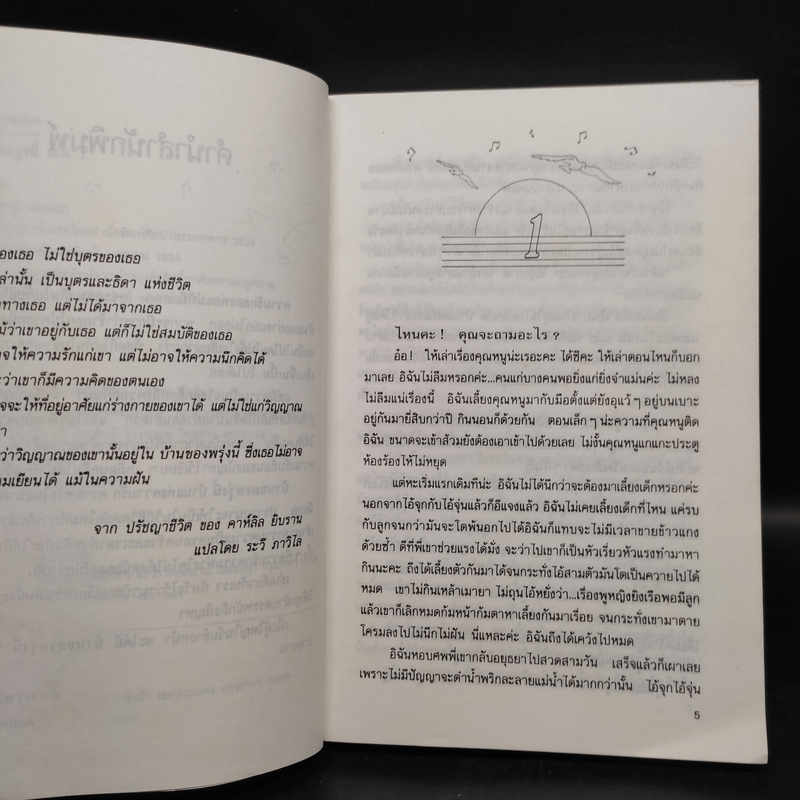 องเธอ ไม่ใช่บุตรของเธอ
ล่านั้น เป็นบุตรและธิดา แห่งชีวิต
ทางเธอ แต่ไม่ได้มาจากเธอ
ม้ว่าเขาอยู่กับเธอ แต่ก็ไม่ใช่สมบัติของเธอ
จให้ความรักแก่เขา แต่ไม่อาจให้ความนึกคิดได้
ะว่าเขาก็มีความคิดของตนเอง
จจะให้ที่อยู่อาศัยแก่ร่างกายของเขาได้ แต่ไม่ใช่แก่วิญญาณ
า
ว่าวิญญาณของเขานั้นอยู่ใน บ้านของพรุ่งนี้ ซึ่งเธอไม่อาจ
ยมเยียนได้ แม้ในความฝัน
จาก ปรัชญาชีวิต ของ คาห์ลิล ยิบราน
แปลโดย ระวี ภาวิไล
1
ไหนคะ! คุณจะถามอะไร?
อ๋อ! ให้เล่าเรื่องคุณหนูน่ะเรอะคะ ได้ซีคะ ให้เล่าตอนไหนก็บอก
มาเลย อิฉันไม่ลืมหรอกค่ะ...คนแก่บางคนพอยิ่งแก่ยิ่งจำแม่นค่ะ ไม่หลง
ไม่ลืมแน่เรื่องนี้ อิฉันเลี้ยงคุณหนูมากับมือตั้งแต่ยังอุแว้ๆ อยู่บนเบาะ
อยู่กันมายี่สิบกว่าปี กินนอนก็ด้วยกัน ตอนเล็กๆ น่ะความที่คุณหนูติด
อิฉัน ขนาดจะเข้าส้วมยังต้องเอาเข้าไปด้วยเลย ไม่งั้นคุณหนูแกแกะประตู
ห้องร้องไห้ไม่หยุด
แต่หะเริ่มแรกเดิมทีน่ะ อิฉันไม่ได้นึกว่าจะต้องมาเลี้ยงเด็กหรอกค่ะ
นอกจากไอ้จุกกับไอ้จุ่นแล้วก็อีแจงแล้ว อิฉันไม่เคยเลี้ยงเด็กที่ไหน แค่รบ
กับลูกจนกว่ามันจะโตพ้นอกไปได้อิฉันก็แทบจะไม่มีเวลาขายข้าวแกง
ด้วยซ้ำ ดีที่พี่เขาช่วยแรงได้มั่ง จะว่าไปเขาก็เป็นหัวเรี่ยวหัวแรงทำมาหา
กินนะคะ ถึงได้เลี้ยงตัวกันมาได้จนกระทั่งไอ้สามตัวมันโตเป็นควายไปได้
หมด เขาไม่กินเหล้าเมายา ไม่ถุนไอ้หยั่งว่า...เรื่องพูหญิงยิงเรือพอมีลูก
แล้วเขาก็เลิกหมดก้มหน้าก้มตาหาเลี้ยงกันมาเรื่อย จนกระทั่งเขามาตาย
โครมลงไปไม่นึกไม่ฝัน นี่แหละค่ะ อิฉันถึงได้เคว้งไปหมด
อิฉันหอบศพพี่เขากลับอยุธยาไปสวดสามวัน เสร็จแล้วก็เผาเลย
เพราะไม่มีปัญญาจะตำน้ำพริกละลายแม่น้ำได้มากกว่านั้น ไอ้จุกไอ้จุ่น
5